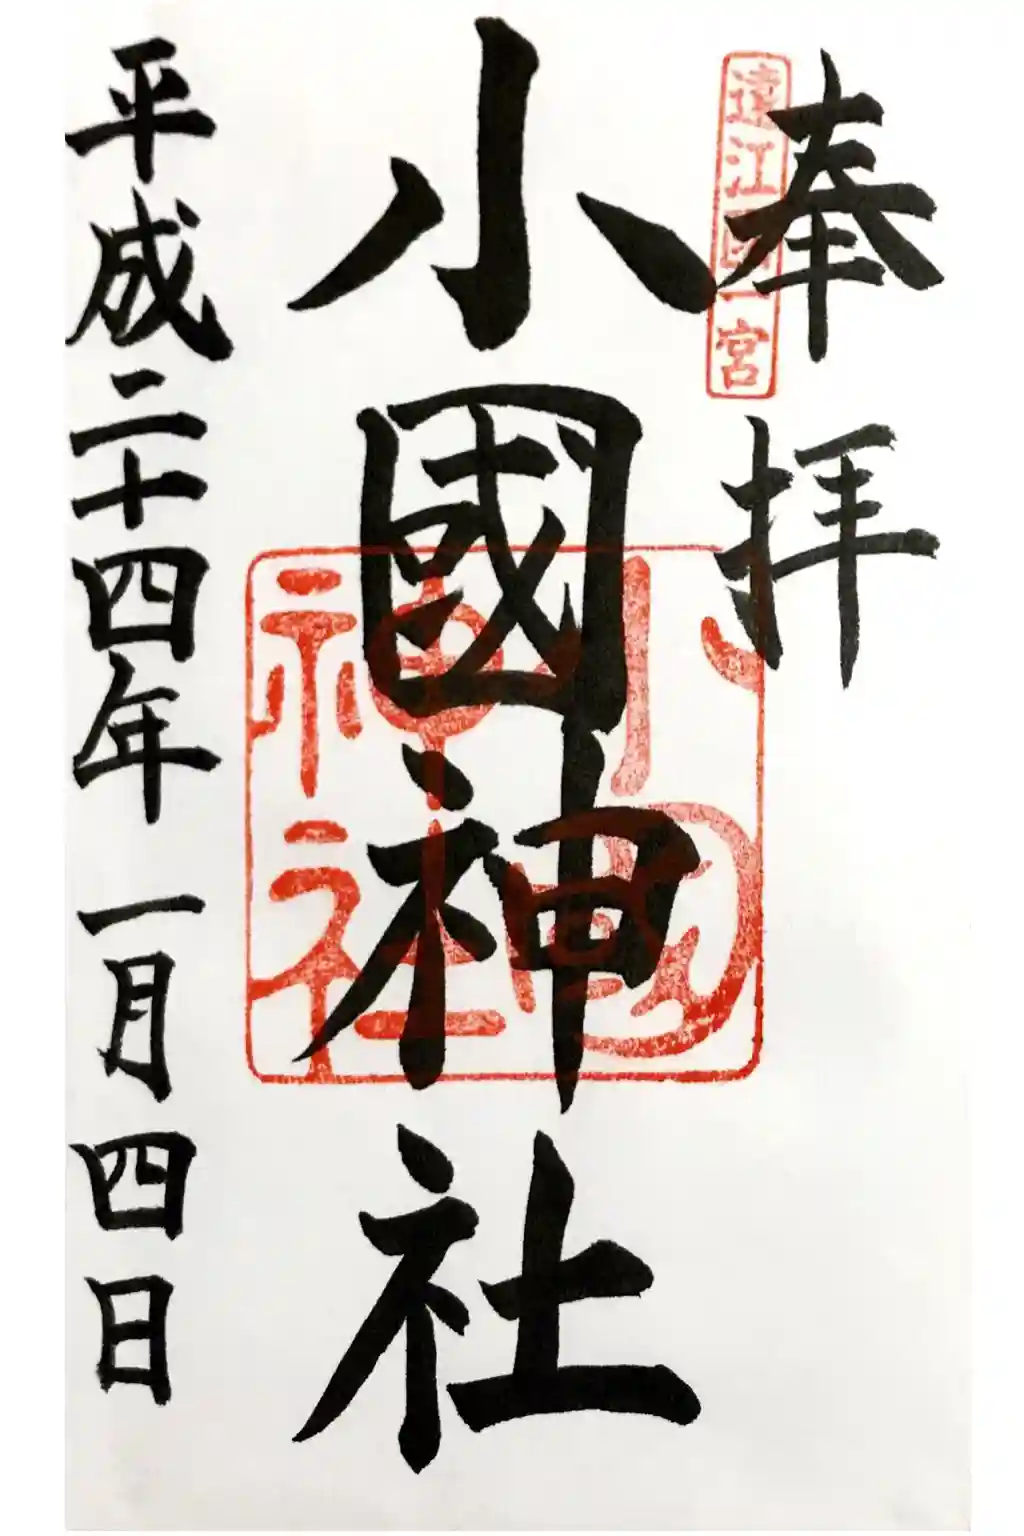 奉拝
遠江國一宮
小國神社
小國神社
平成二十四年一月四日